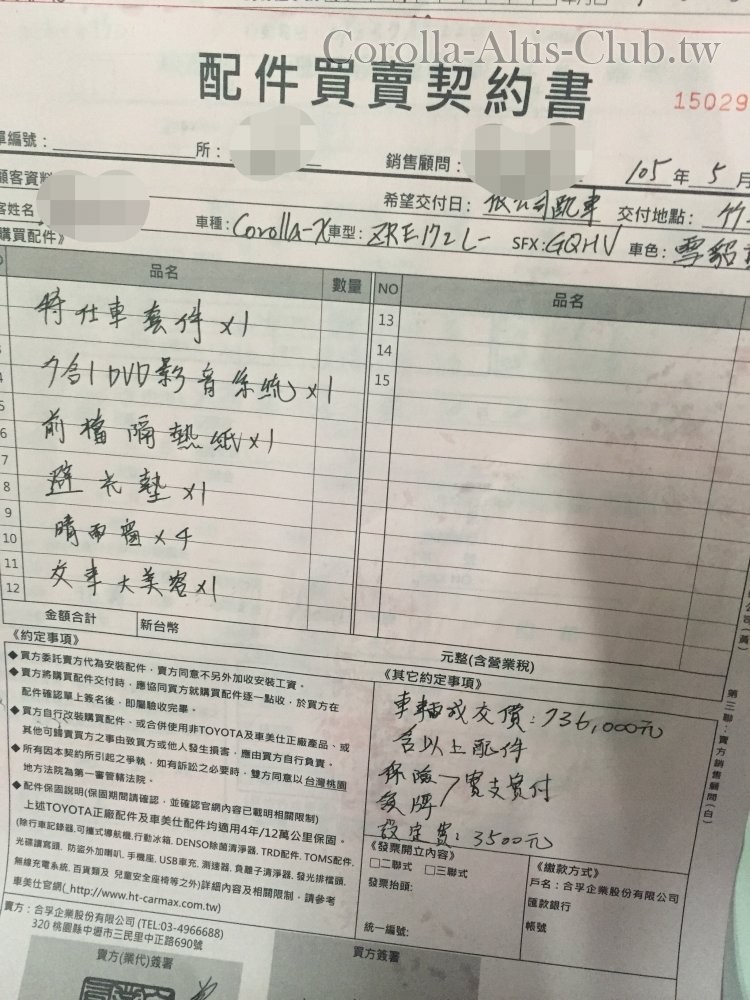 Corolla-Altis-Club.tw
配件買賣契約書
15029
編號：
所：
銷售顧問：
105年5月
顧客資料
希望交付日：依公司配車 交付地點：竹
客姓名
車種：Corolla-X 車型：ZRE172L- SFX：GQHV 車色：雪貂
購買配件》
品名 數量 NO 品名
特仕車套件x1
13
14
7合1DVD影音系統x1
15
5
前檔隔熱紙x1
6
7
避光墊x1
8
9
晴雨窗x4
10
11
交車大美容x1
12
金額合計 新台幣 元整(含營業稅)
《約定事項》
◆買方委託賣方代為安裝配件，賣方同意不另外加收安裝工資。
◆賣方將購買配件交付時，應協同買方就購買配件逐一點收，於買方在
配件確認單上簽名後，即屬驗收完畢。
◆買方自行改裝購買配件、或合併使用非TOYOTA及車美仕正廠產品、或
其他可歸責買方之事由致買方或他人發生損害，應由買方自行負責。
◆所有因本契約所引起之爭執，如有訴訟之必要時，雙方同意以台灣桃園
地方法院為第一審管轄法院。
◆配件保固說明(保固期間請確認，並確認官網內容已載明相關限制)
上述TOYOTA正廠配件及車美仕配件均適用4年/12萬公里保固。
(除行車記錄器.可攜式導航機.行動冰箱.DENSO除菌清淨器.TRD配件.TOMS配件.
光碟讀寫頭.防盜外加喇叭.手機座.USB車充.測速器.負離子清淨器.發光排檔頭.
無線充電系統.百貨類及 兒童安全座椅等之外)詳細內容及相關限制，請參考
車美仕官網(http://www.ht-carmax.com.tw)
《其它約定事項》
車輛成交價：736,000元
含以上配件
保險
領牌 >實支實付
設定費：3500元
《發票開立內容》
□二聯式 □三聯式
發票抬頭：
統一編號：
《繳款方式》
戶名：合孚企業股份有限公司
匯款銀行
帳號
第三聯：賣方銷售顧問(白)
賣方：合孚企業股份有限公司 (TEL:03-4966688)
320 桃園縣中壢市三民里中正路690號
賣方(業代)簽署
買方簽署